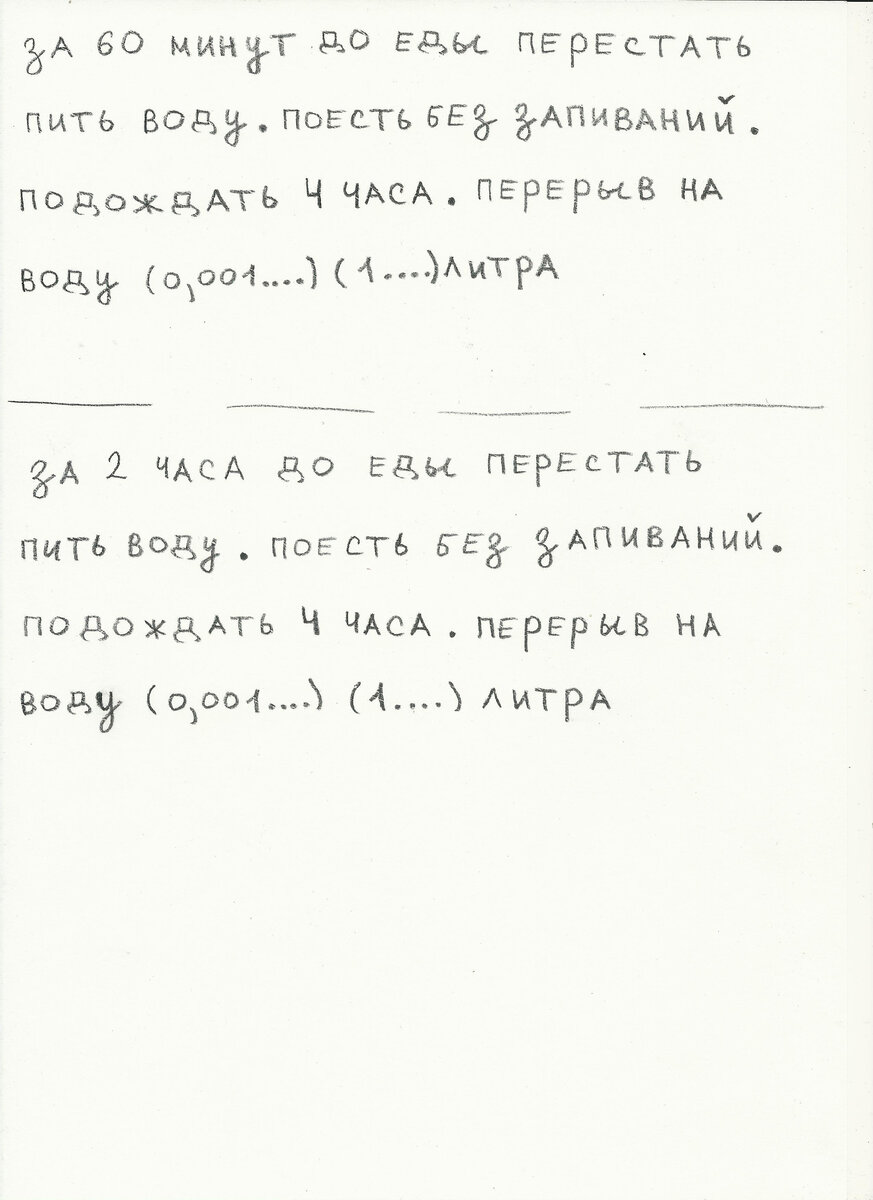 ЗА 60 МИНУТ ДО ЕДЫ ПЕРЕСТАТЬ
ПИТЬ ВОДУ. ПОЕСТЬ БЕЗ ЗАПИВАНИЙ.
ПОДОЖДАТЬ 4 ЧАСА. ПЕРЕРЫВ НА
ВОДУ (0,001....) (1....) ЛИТРА
ЗА 2 ЧАСА ДО ЕДЫ ПЕРЕСТАТЬ
ПИТЬ ВОДУ. ПОЕСТЬ БЕЗ ЗАПИВАНИЙ.
ПОДОЖДАТЬ 4 ЧАСА. ПЕРЕРЫВ НА
ВОДУ (0,001....) (1....) ЛИТРА